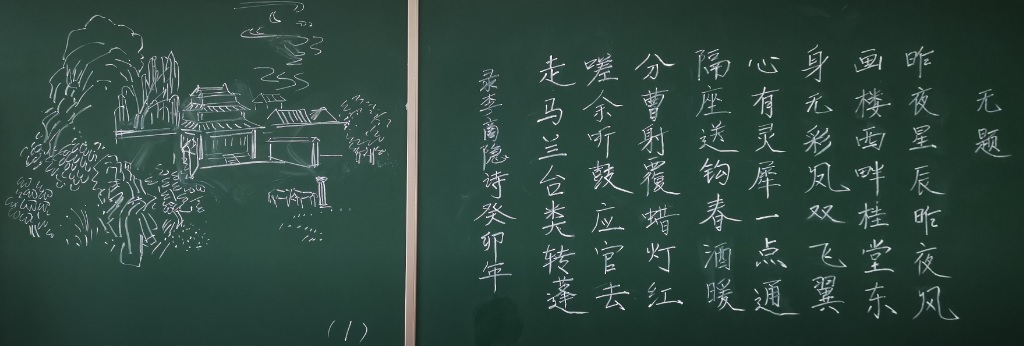 无题
昨夜星辰昨夜风
画楼西畔桂堂东
身无彩凤双飞翼
心有灵犀一点通
隔座送钩春酒暖
分曹射覆蜡灯红
嗟余听鼓应官去
走马兰台类转蓬
录李商隐诗癸卯年
(1)